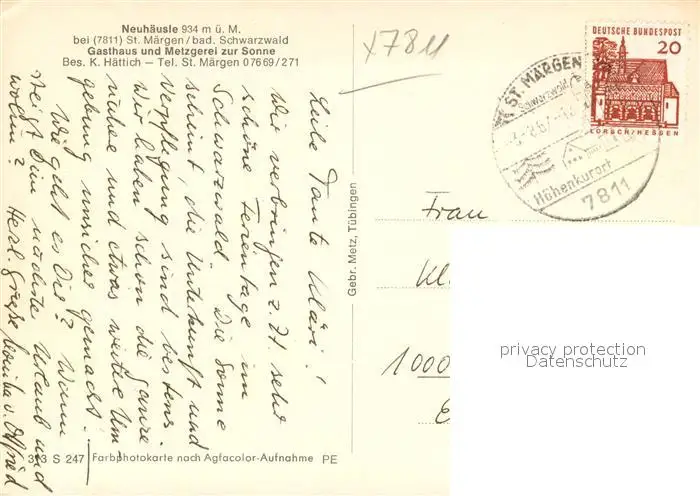 Neuhäusle 934 m ü. M.
bei (7811) St. Märgen / bad. Schwarzwald
Gasthaus und Metzgerei zur Sonne
Bes. K. Hättich — Tel. St. Märgen 07669/271
x7811
DEUTSCHE BUNDESPOST
20
LORSCH/HESSEN
ST. MÄRGEN
Schwarzwald
Höhenkurort
7811
Liebe Tante Kläri!
Wir verbringen z. Zt. sehr
schöne Ferientage im
Schwarzwald. Die Sonne
scheint, die Unterkunft und
Verpflegung sind bestens.
Wir haben schon die ganze
nähere und etwas weitere Um
gebung unsicher gemacht.
Wie geht es Dir? Wann
ver Dein nächster Urlaub und
wohin? Herzl. Grüße
Gebr. Metz, Tübingen
Frau
Kl
1000
313 S 247
Farbphotokarte nach Agfacolor-Aufnahme PE
privacy protection
Datenschutz